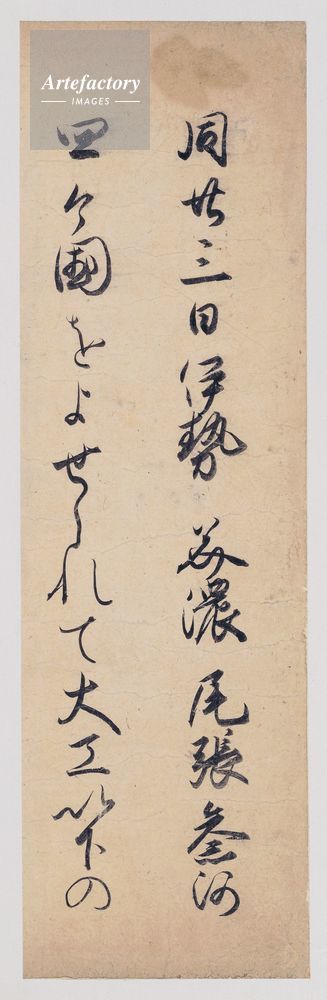 同廿三日伊勢 美濃 尾張 参河
四ケ國をよせられて大工以下の
Artefactory
IMAGES